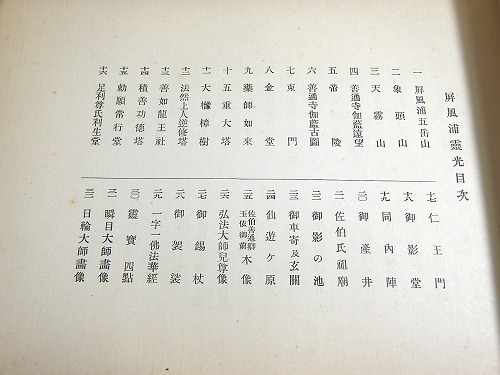 屏風浦靈光目次
一 屏風浦五岳山
二 象頭山
三 天霧山
四 善通寺伽藍遠望
五 帝陵
六 善通寺伽藍古圖
七 東門
八 金堂
九 藥師如來
十 五重大塔
十一 大樟樹
十二 法然上人逆修塔
十三 善如龍王社
十四 積善功德塔
十五 勅願常行堂
十六 足利尊氏利生堂
十七 仁王門
十八 御影堂
十九 同內陣
二〇 御產井
二一 佐伯氏祖廟
二二 御影の池
二三 御車寄及玄關
二四 仙遊ケ原
二五 佐伯善通卿 玉依御前 木像
二六 弘法大師兒尊像
二七 御錫杖
二八 御袈裟
二九 一字一佛法華經
三〇 靈寶四點
三一 瞬目大師畫像
三二 日輪大師畫像